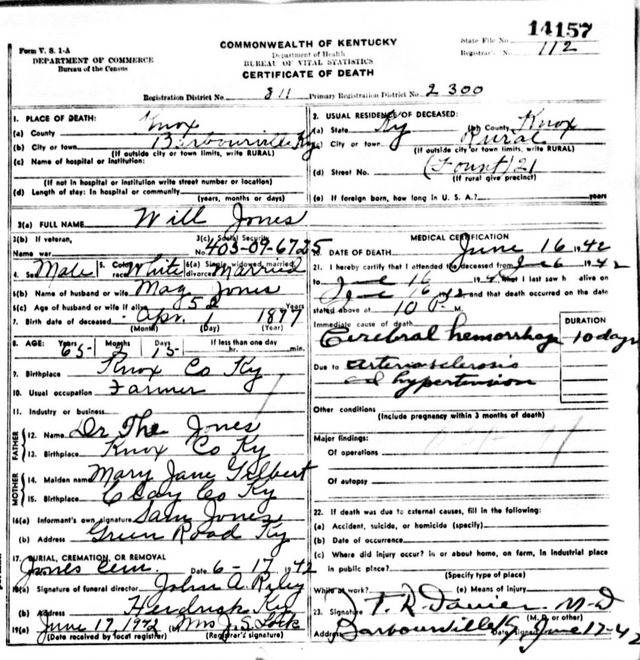 14157
Form V. S. 1-A
DEPARTMENT OF COMMERCE
Bureau of the Census
COMMONWEALTH OF KENTUCKY
Department of Health
BUREAU OF VITAL STATISTICS
CERTIFICATE OF DEATH
State File No.
Registrar's No. 112
Registration District No. 811 Primary Registration District No. 2300
1. PLACE OF DEATH:
(a) County Knox
(b) City or town Barbourville Ky
(If outside city or town limits, write RURAL)
(c) Name of hospital or institution:
(If not in hospital or institution write street number or location)
(d) Length of stay: In hospital or community
(years, months or days)
2. USUAL RESIDENCE OF DECEASED:
(a) State Ky (b) County Knox
(c) City or town Rural
(If outside city or town limits, write RURAL)
(d) Street No. (Fount) 21
(If rural give precinct)
(e) If foreign born, how long in U. S. A.? years
3(a) FULL NAME Will Jones
3(b) If veteran,
Name war
3(c) Social Security
No. 403-09-6725
4. Sex Male 5. Color race White 6(a) Single, widowed, married, divorced Married
6(b) Name of husband or wife Mag Jones
6(c) Age of husband or wife if alive 52 Years
7. Birth date of deceased Apr. 1 1877
(Month) (Day) (Year)
8. AGE: Years Months Days If less than one day
65 15 hr. min.
9. Birthplace Knox Co Ky
10. Usual occupation Farmer
11. Industry or business
FATHER
12. Name Dr The Jones
13. Birthplace Knox Co Ky
MOTHER
14. Maiden name Mary Jane Gilbert
15. Birthplace Clay Co Ky
16(a) Informant's own signature Sam Jones
(b) Address Green Road Ky
17. BURIAL, CREMATION, OR REMOVAL
Jones Cem. Date 6-17 1942
18(a) Signature of funeral director John A. Riley
(b) Address Ky
19(a) June 17, 1942 (b) Mrs J. S. Lock
(Date received by local registrar) (Registrar's signature)
MEDICAL CERTIFICATION
20. DATE OF DEATH June 16 1942
21. I hereby certify that I attended the deceased from June 6 1942
to June 16 1942 that I last saw h alive on
June 16 1942 and that death occurred on the date
stated above at 10 P. M.
Immediate cause of death
DURATION
Cerebral hemorrhage 10 days
Due to arteriosclerosis
and hypertension
Other conditions
(Include pregnancy within 3 months of death)
Major findings:
Of operations
Of autopsy
22. If death was due to external causes, fill in the following:
(a) Accident, suicide, or homicide (specify)
(b) Date of occurrence
(c) Where did injury occur? in or about home, on farm, in industrial place
in public place?
(Specify type of place)
While at work? (e) Means of injury
23. Signature T. R. Davies M.D
(M. D. or other)
Address Barbourville Ky Date signed June 17-42